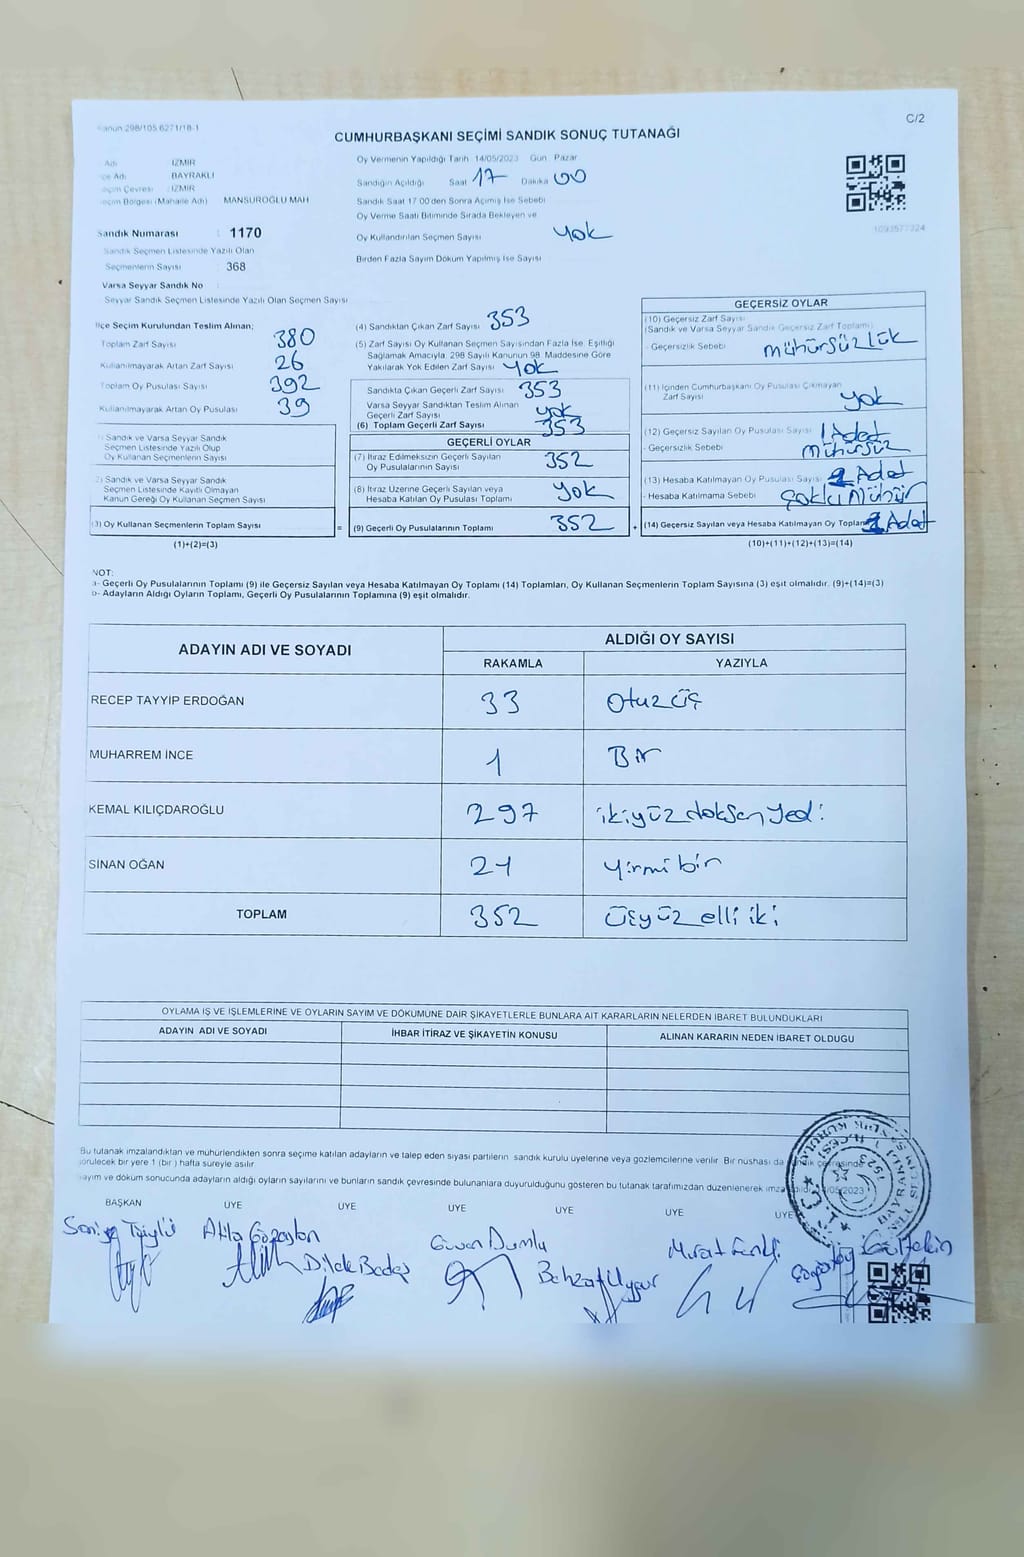 Kanun 298/105.6271/18-1
C/2
CUMHURBAŞKANI SEÇİMİ SANDIK SONUÇ TUTANAĞI
Adı İZMİR
Adı BAYRAKLI
Seçim Çevresi : İZMİR
Seçim Bölgesi (Mahalle Adı) MANSUROĞLU MAH
Sandık Numarası : 1170
Sandık Seçmen Listesinde Yazılı Olan
Seçmenlerin Sayısı : 368
Varsa Seyyar Sandık No
Seyyar Sandık Seçmen Listesinde Yazılı Olan Seçmen Sayısı
Oy Vermenin Yapıldığı Tarih 14/05/2023 Gün Pazar
Sandığın Açıldığı Saat 17 Dakika 00
Sandık Saat 17 00'den Sonra Açılmış İse Sebebi
Oy Verme Saati Bitiminde Sırada Bekleyen ve
Oy Kullandırılan Seçmen Sayısı Yok
Birden Fazla Sayım Döküm Yapılmış İse Sayısı
1093577324
İlçe Seçim Kurulundan Teslim Alınan;
Toplam Zarf Sayısı 380
Kullanılmayarak Artan Zarf Sayısı 26
Toplam Oy Pusulası Sayısı 392
Kullanılmayarak Artan Oy Pusulası 39
1) Sandık ve Varsa Seyyar Sandık
Seçmen Listesinde Yazılı Olup
Oy Kullanan Seçmenlerin Sayısı
2) Sandık ve Varsa Seyyar Sandık
Seçmen Listesinde Kayıtlı Olmayan
Kanun Gereği Oy Kullanan Seçmen Sayısı
(3) Oy Kullanan Seçmenlerin Toplam Sayısı =
(1)+(2)=(3)
(4) Sandıktan Çıkan Zarf Sayısı 353
(5) Zarf Sayısı Oy Kullanan Seçmen Sayısından Fazla İse, Eşitliği
Sağlamak Amacıyla, 298 Sayılı Kanunun 98. Maddesine Göre
Yakılarak Yok Edilen Zarf Sayısı Yok
Sandıkta Çıkan Geçerli Zarf Sayısı 353
Varsa Seyyar Sandıktan Teslim Alınan
Geçerli Zarf Sayısı yok
(6) Toplam Geçerli Zarf Sayısı 353
GEÇERLİ OYLAR
(7) İtiraz Edilmeksizin Geçerli Sayılan
Oy Pusulalarının Sayısı 352
(8) İtiraz Üzerine Geçerli Sayılan veya
Hesaba Katılan Oy Pusulası Toplamı yok
(9) Geçerli Oy Pusulalarının Toplamı 352 +
GEÇERSİZ OYLAR
(10) Geçersiz Zarf Sayısı
(Sandık ve Varsa Seyyar Sandık Geçersiz Zarf Toplamı)
- Geçersizlik Sebebi mühürsüzlük
(11) İçinden Cumhurbaşkanı Oy Pusulası Çıkmayan
Zarf Sayısı yok
(12) Geçersiz Sayılan Oy Pusulası Sayısı 1 Adet
- Geçersizlik Sebebi mühürsüz
(13) Hesaba Katılmayan Oy Pusulası Sayısı Adet
- Hesaba Katılmama Sebebi çoklu mühür
(14) Geçersiz Sayılan veya Hesaba Katılmayan Oy Toplamı Adet
(10)+(11)+(12)+(13)=(14)
NOT:
a- Geçerli Oy Pusulalarının Toplamı (9) ile Geçersiz Sayılan veya Hesaba Katılmayan Oy Toplamı (14) Toplamları, Oy Kullanan Seçmenlerin Toplam Sayısına (3) eşit olmalıdır. (9)+(14)=(3)
b- Adayların Aldığı Oyların Toplamı, Geçerli Oy Pusulalarının Toplamına (9) eşit olmalıdır.
ADAYIN ADI VE SOYADI ALDIĞI OY SAYISI
RAKAMLA YAZIYLA
RECEP TAYYİP ERDOĞAN 33 Otuzüç
MUHARREM İNCE 1 Bir
KEMAL KILIÇDAROĞLU 297 ikiyüzdoksanyedi
SİNAN OĞAN 21 yirmi bir
TOPLAM 352 üçyüz elli iki
OYLAMA İŞ VE İŞLEMLERİNE VE OYLARIN SAYIM VE DÖKÜMÜNE DAİR ŞİKAYETLERLE BUNLARA AİT KARARLARIN NELERDEN İBARET BULUNDUKLARI
ADAYIN ADI VE SOYADI İHBAR İTİRAZ VE ŞİKAYETİN KONUSU ALINAN KARARIN NEDEN İBARET OLDUĞU
Bu tutanak imzalandıktan ve mühürlendikten sonra seçime katılan adayların ve talep eden siyasi partilerin sandık kurulu üyelerine veya gözlemcilerine verilir. Bir nüshası da sandık çevresinde
görülecek bir yere 1 (bir ) hafta süreyle asılır
Sayım ve döküm sonucunda adayların aldığı oyların sayılarını ve bunların sandık çevresinde bulunanlara duyurulduğunu gösteren bu tutanak tarafımızdan düzenlenerek imza edildi. /05/2023
BAŞKAN ÜYE ÜYE ÜYE ÜYE ÜYE ÜYE
Atila Gözaslan
Dilek
Güven Dumlu
Behzat Uygur
Murat
Gültekin